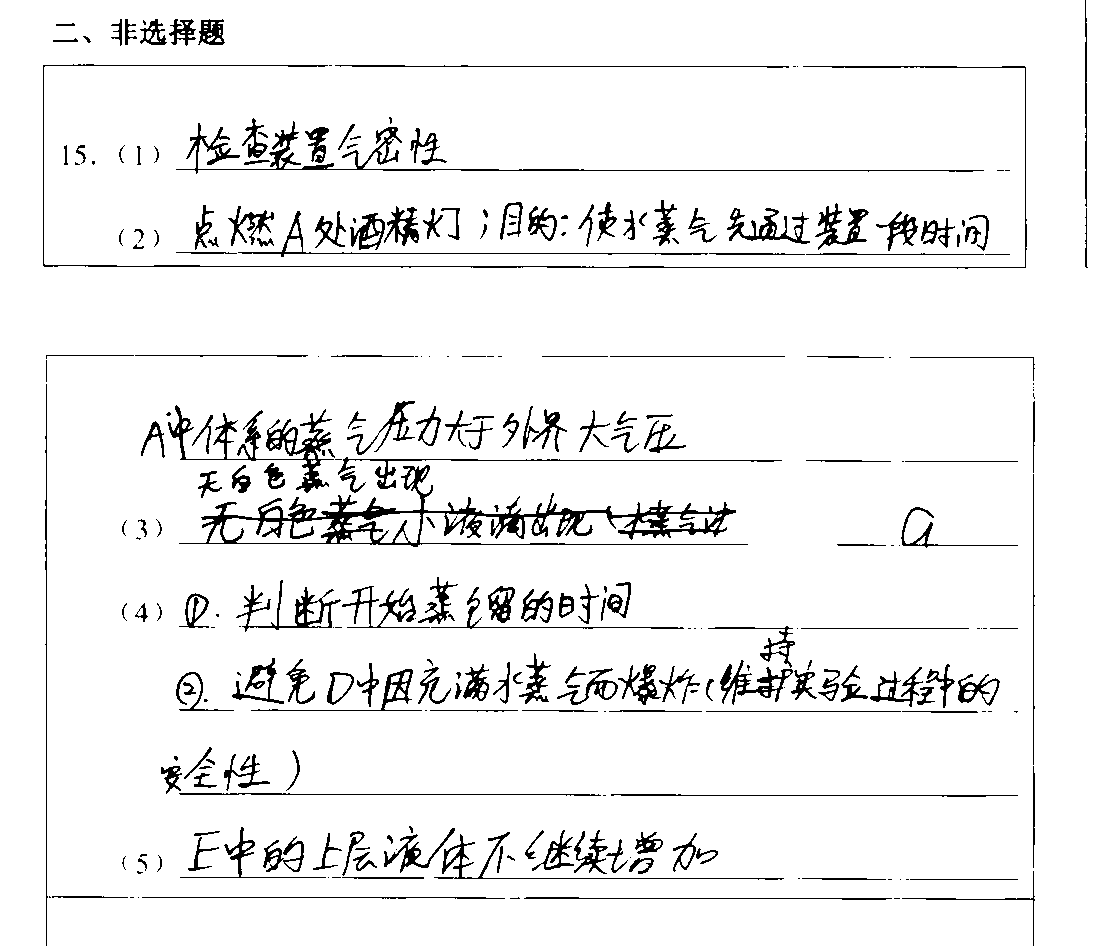 二、非选择题
15.（1）检查装置气密性
（2）点燃A处酒精灯；目的：使水蒸气先通过装置一段时间
A中体系的蒸气压力大于外界大气压
无白色蒸气出现
（3）无白色蒸气小液滴出现 a
（4）①.判断开始蒸馏的时间
持
②.避免D中因充满水蒸气而爆炸（维护实验过程中的
安全性）
（5）E中的上层液体不继续增加